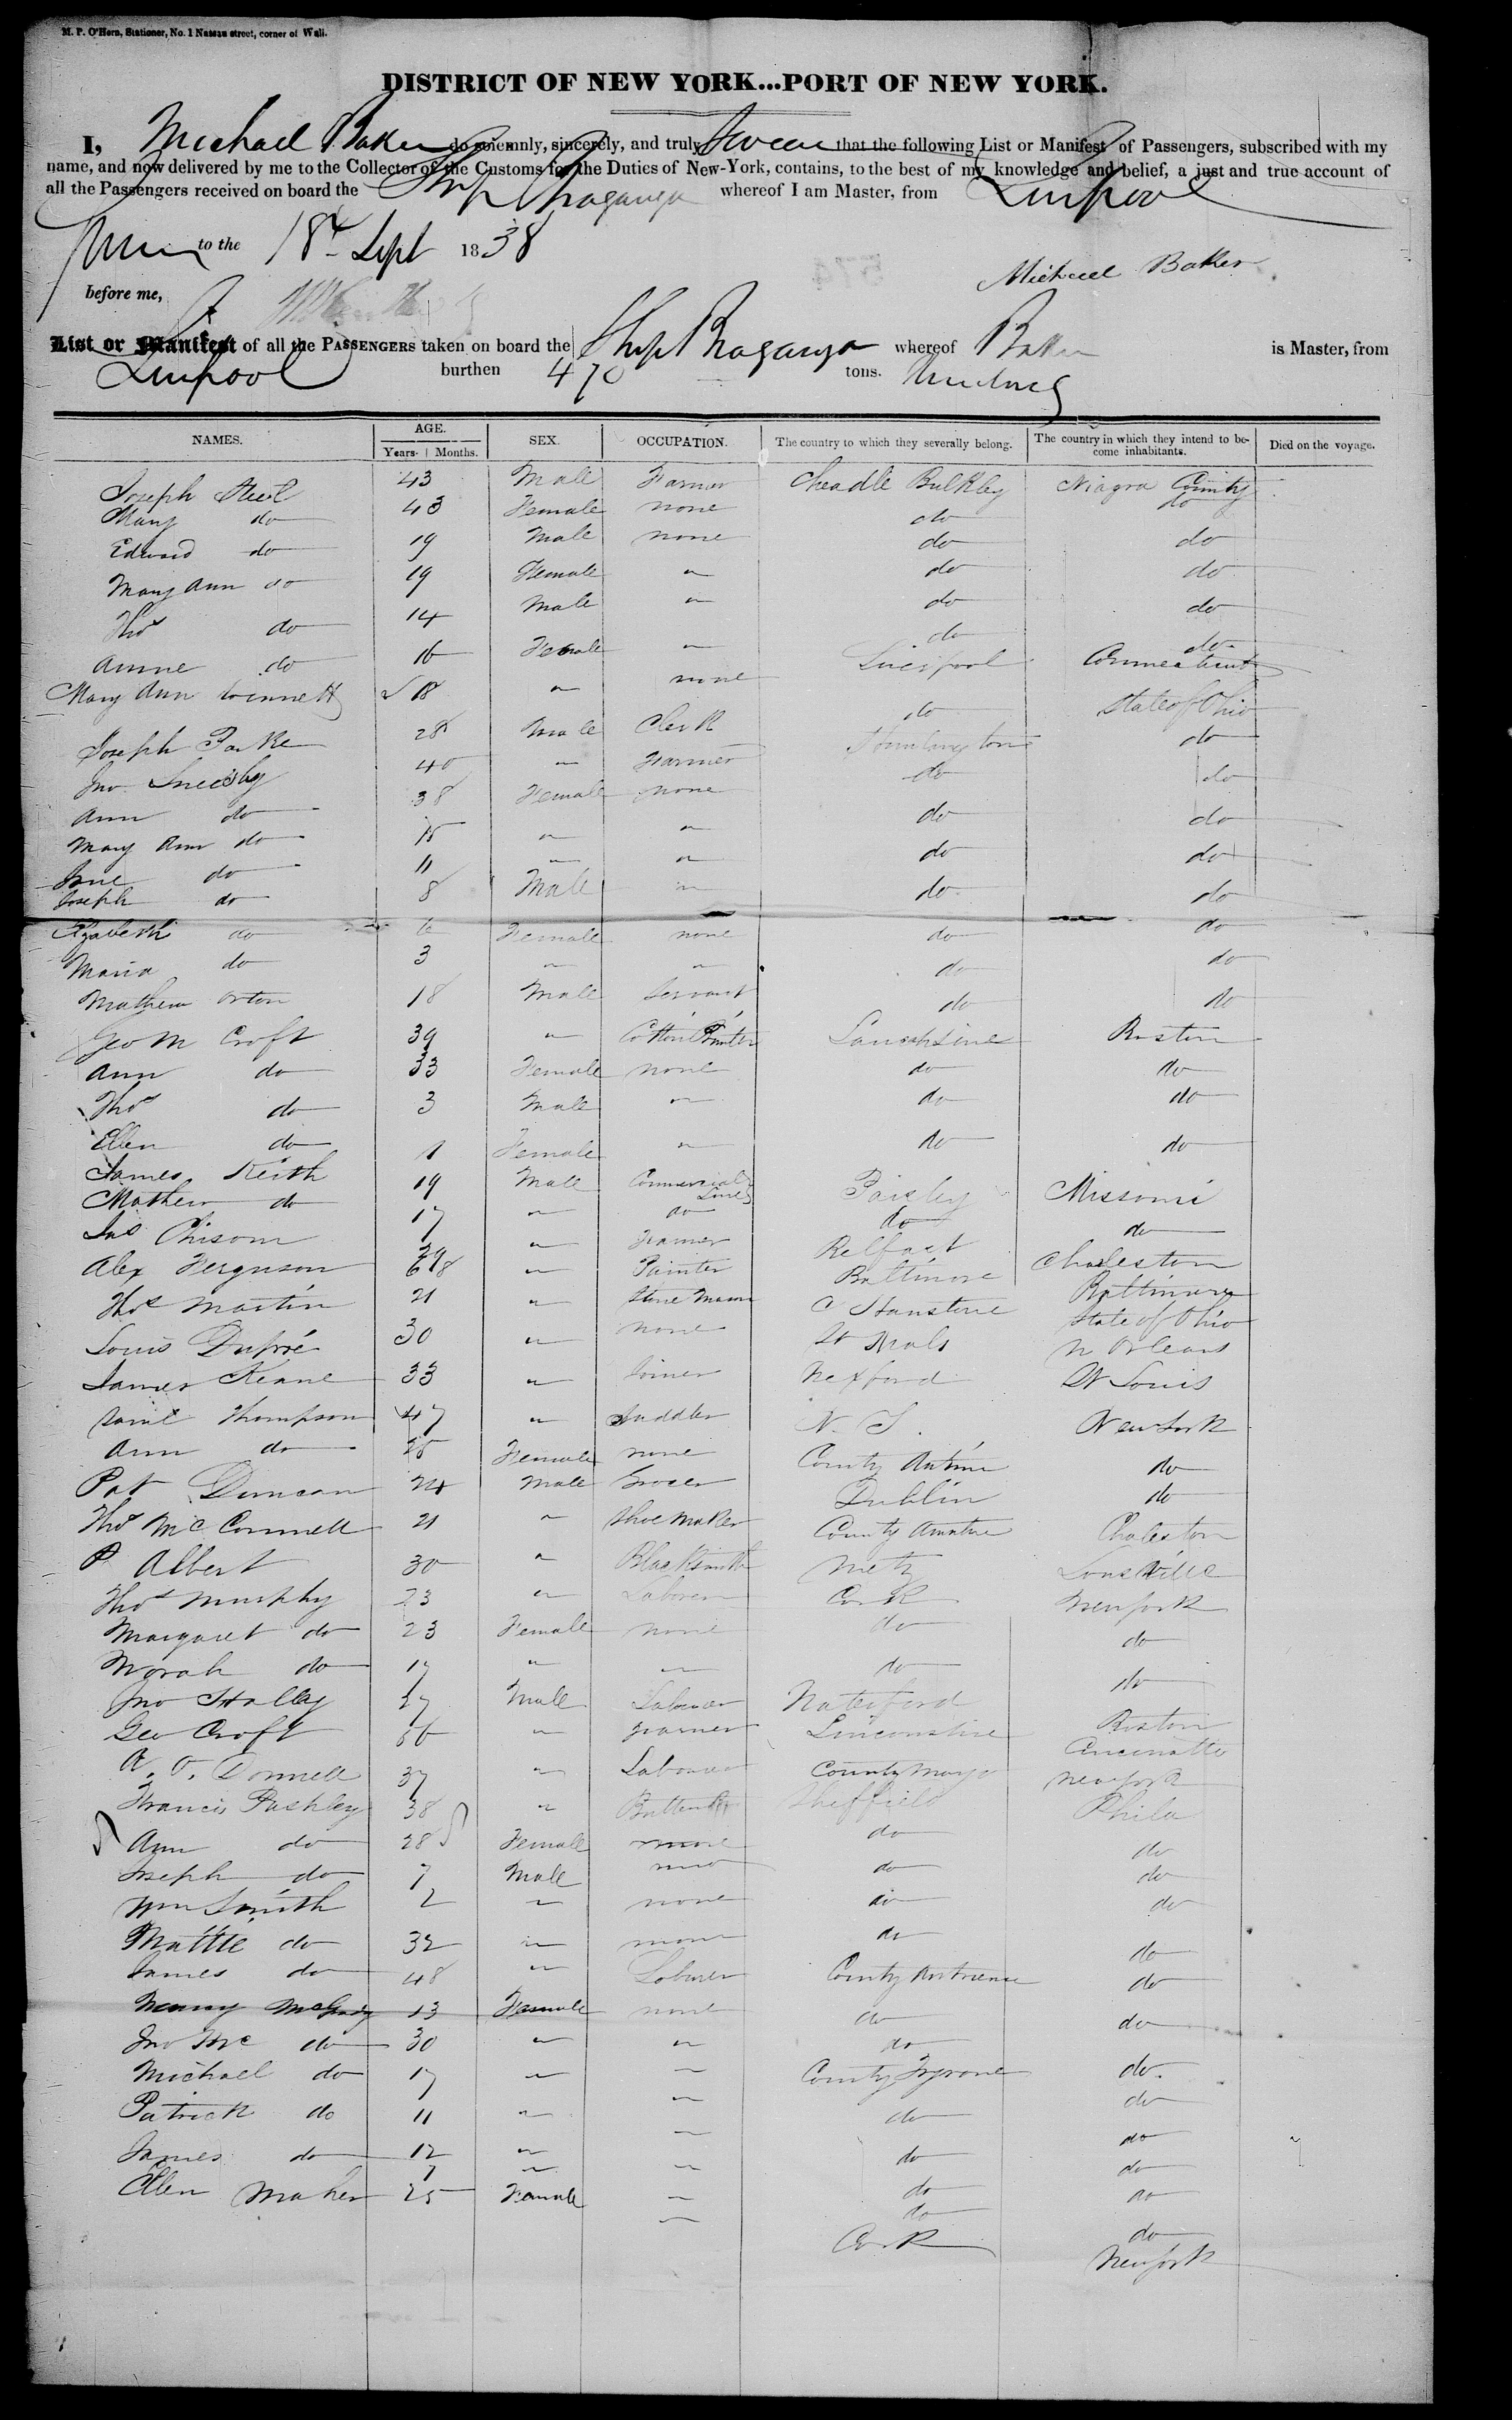 M. P. O'Hern, Stationer, No. 1 Nassau street, corner of Wall.
DISTRICT OF NEW YORK...PORT OF NEW YORK.
I, Michael Baker do solemnly, sincerely, and truly Swear that the following List or Manifest of Passengers, subscribed with my
name, and now delivered by me to the Collector of the Customs for the Duties of New-York, contains, to the best of my knowledge and belief, a just and true account of
all the Passengers received on board the Ship Braganza whereof I am Master, from Liverpool
to the 18th Sept 1838
Michael Baker
before me,
List or Manifest of all the PASSENGERS taken on board the Ship Braganza whereof Baker is Master, from
Liverpool burthen 470 tons.
NAMES. AGE. Years. Months. SEX. OCCUPATION. The country to which they severally belong. The country in which they intend to become inhabitants. Died on the voyage.
Joseph Steel 43 Male Farmer Cheadle Bulkley Niagra County
Mary do 43 Female none do do
Edward do 19 Male none do do
Mary Ann do 19 Female " do do
Thos do 14 Male " do do
Annne do 16 Female " do do
Mary Ann 18 " none Liverpool Connecticut
Joseph Parke 28 Male Clerk do State of Ohio
Jno 40 " Farmer do
Ann do 38 Female none do do
Mary Ann do 15 " " do do
Jane do 11 " " do do
Joseph do 8 Male " do do
Elizabeth do 6 Female none do do
Maria do 3 " " do do
Mathew Orton 18 Male Servant do do
Geo M Croft 39 " Cotton Printer Boston
Ann do 33 Female none do do
Thos do 3 Male " do do
Ellen do 1 Female " do do
James Keith 19 Male Commercial Paisley Missouri
Mathew do 17 " do do do
Jas Chisom 29 " Farmer Belfast Charleston
Alex Ferguson " Painter Baltimore Baltimore
Thos Martin 21 " Stone Mason State of Ohio
Louis Dupré 30 " none N Orleans
James Keane 33 " Joiner Wexford St Louis
Saml Thompson 47 " Saddler New York
Ann do 25 Female none County Antrim do
Pat Duncan 24 Male Grocer Dublin do
Thos McConnell 21 " Shoe Maker County Charleston
P Albert 30 " Blacksmith Metz Louisville
Thos Murphy 23 " Laborer Cork New York
Margaret do 23 Female none do do
Norah do 17 " " do do
Jno Halley 27 Male Laborer Waterford
Geo Croft 56 " Farmer Lincolnshire Boston
A. O. Donnell 37 " Labourer County Mayo Cincinatti
Francis Pashley 38 " Sheffield New York
Ann do 28 Female none do Phila
Joseph do 7 Male none do do
Wm Smith 2 " none do do
Mattie do 32 " none do do
James do 48 " Laborer County do
Nancy 13 Female none do do
Jno Mc do 30 " " do do
Michael do 17 " " County Tyrone do
Patrick do 11 " " do do
James do 12 " " do do
7 " " do do
Ellen Maher 25 Female " do do
" do do
Cork New York